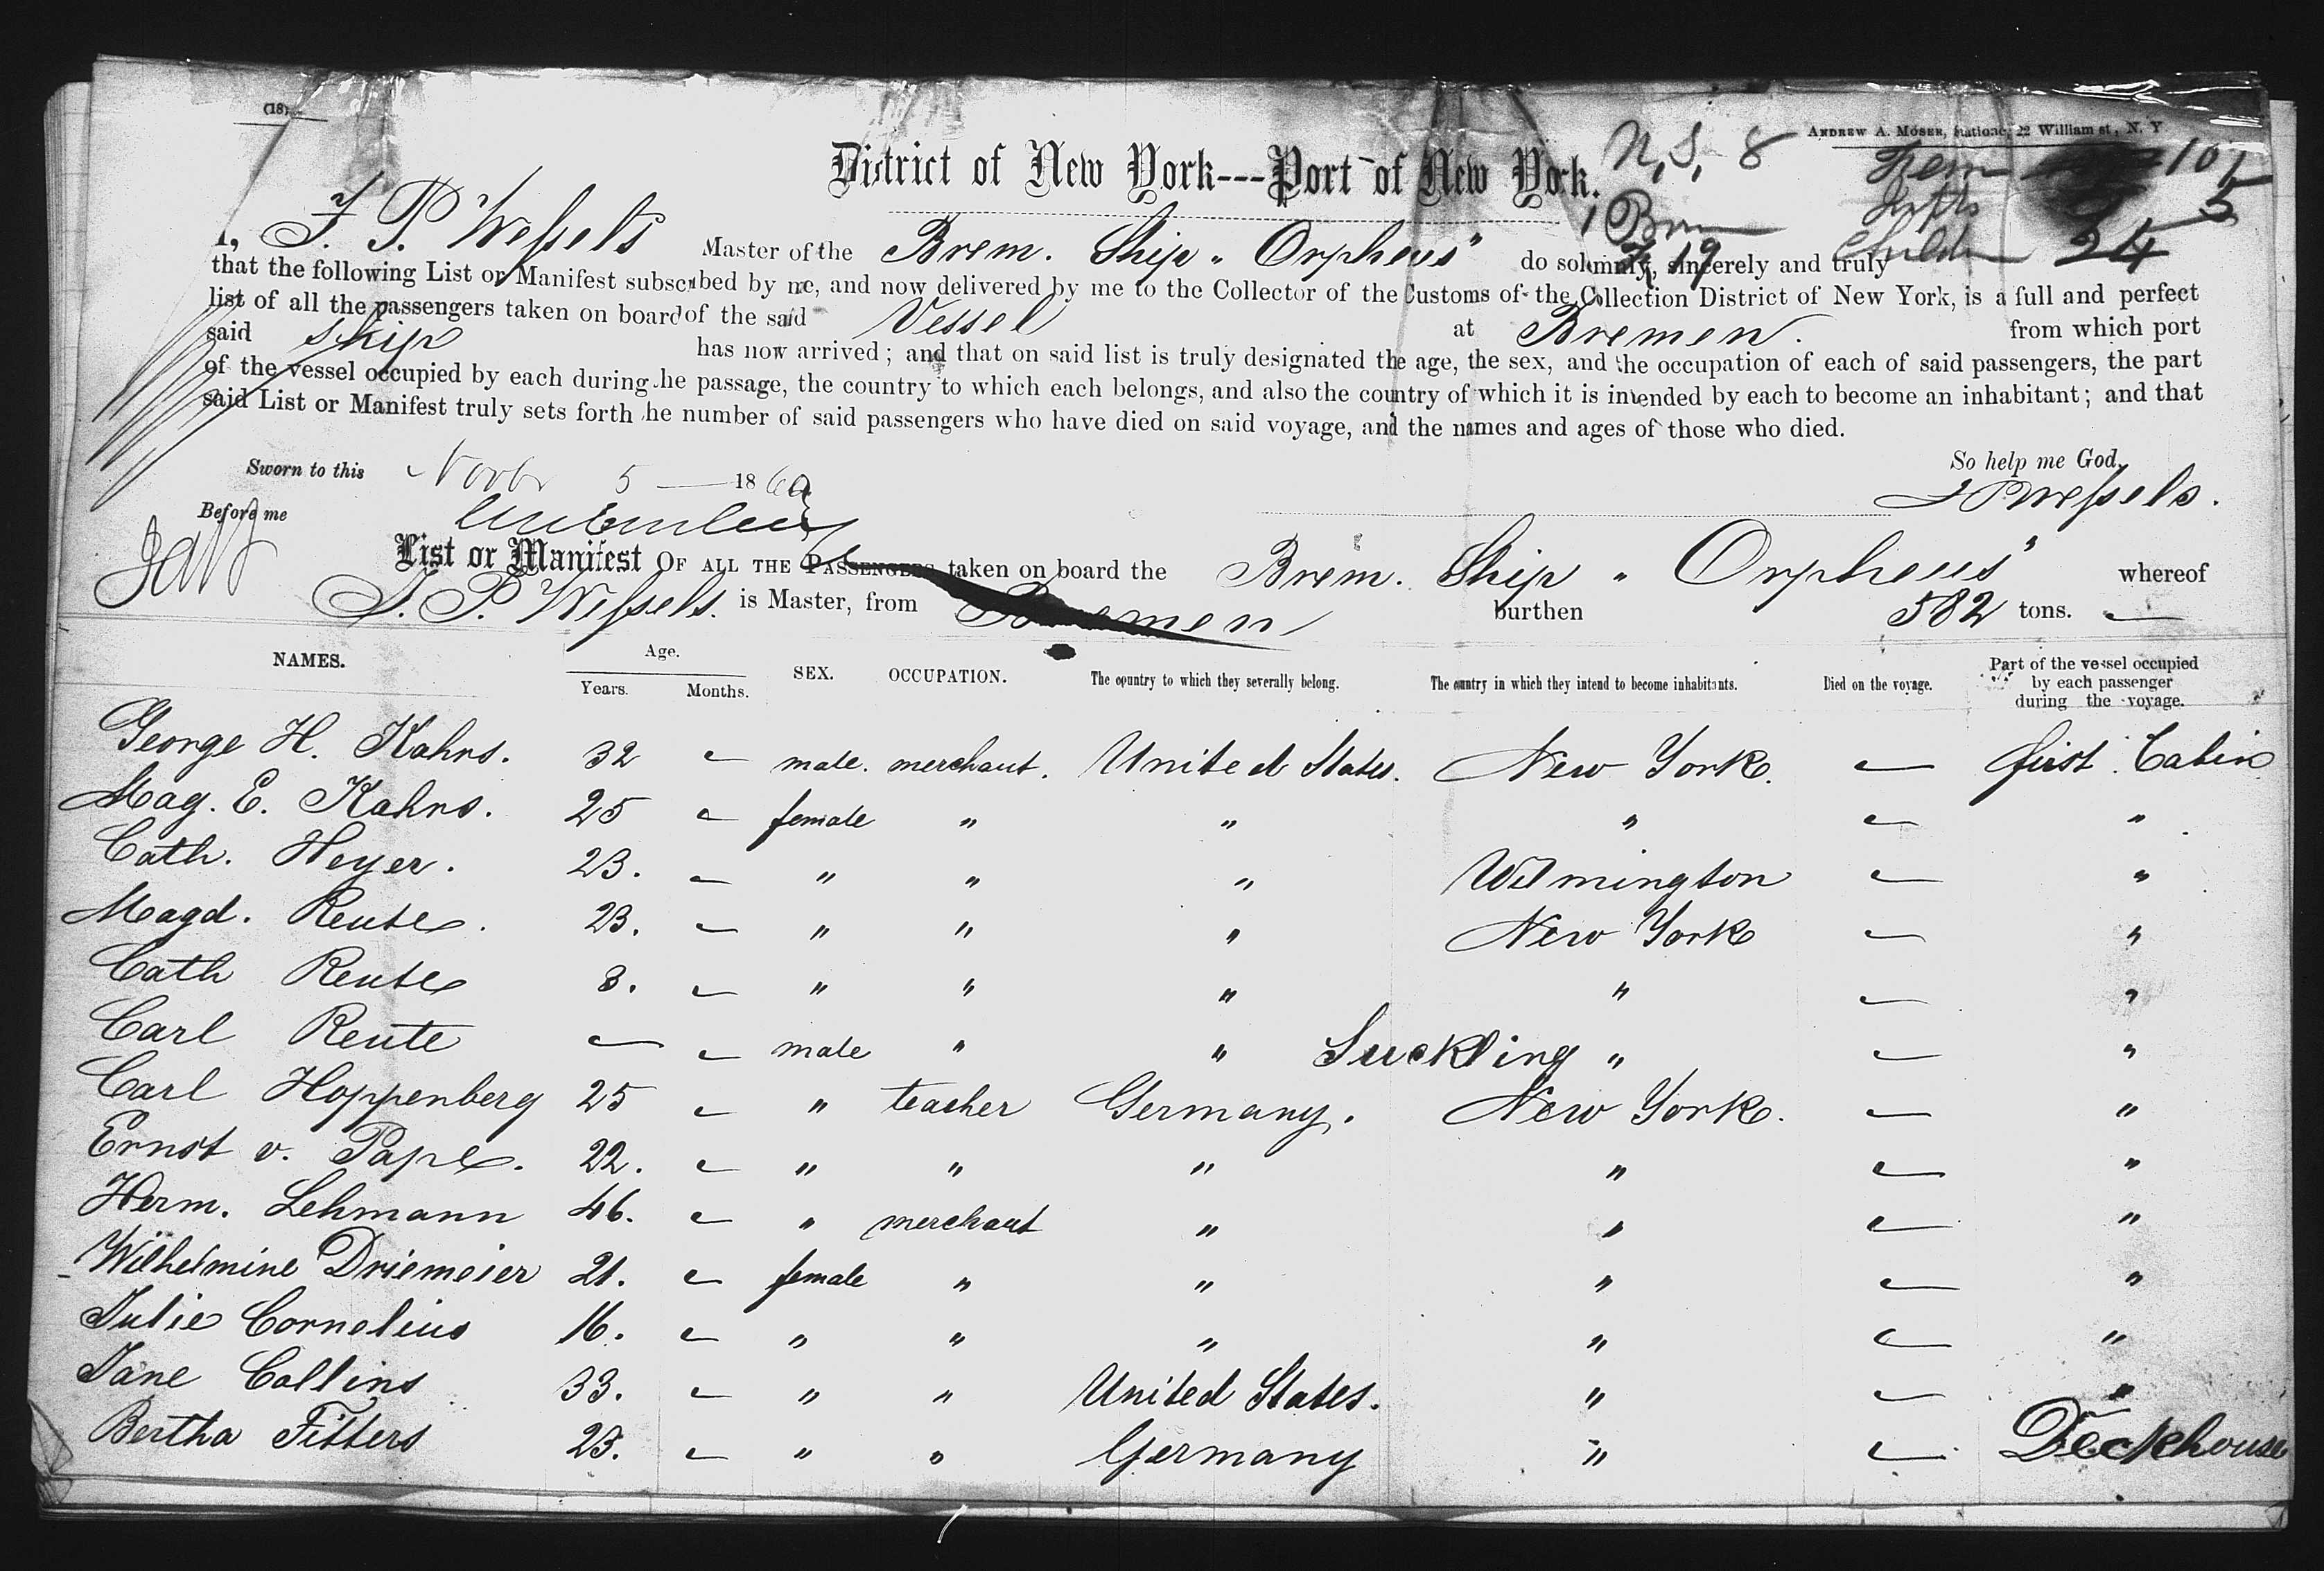 (18)
ANDREW A. MOSER, Stationer, 22 William st, N. Y
District of New York---Port of New York.
N, S, 8
101
5
24
19
I, J. P. Wessels Master of the Brem. Ship "Orpheus" do solemnly, sincerely and truly
that the following List or Manifest subscribed by me, and now delivered by me to the Collector of the Customs of the Collection District of New York, is a full and perfect
list of all the passengers taken on board of the said Vessel at Bremen. from which port
said Ship has now arrived; and that on said list is truly designated the age, the sex, and the occupation of each of said passengers, the part
of the vessel occupied by each during the passage, the country to which each belongs, and also the country of which it is intended by each to become an inhabitant; and that
said List or Manifest truly sets forth the number of said passengers who have died on said voyage, and the names and ages of those who died.
So help me God.
Sworn to this Novbr 5 — 186
J P Wessels.
Before me
List or Manifest OF ALL THE PASSENGERS taken on board the Brem. Ship "Orpheus" whereof
J. P. Wessels. is Master, from Bremen burthen 582 tons.
NAMES. Age. Years. Months. SEX. OCCUPATION. The country to which they severally belong. The country in which they intend to become inhabitants. Died on the voyage. Part of the vessel occupied by each passenger during the voyage.
George H. Kahrs. 32 — male. merchant. United States. New York. — first Cabin
Mag. E. Kahrs. 25 — female " " " — "
Cath. Heyer. 23. — " " " Wilmington — "
Magd. Reute. 23. — " " " New York — "
Cath Reute 8. — " " " " — "
Carl Reute — — male " " Suckling " — "
Carl Hoppenberg 25 — " teacher Germany. New York. — "
Ernst v. Pape. 22. — " " " " — "
Herm. Lehmann 46. — " merchant " " — "
Wilhelmine Driemeier 21. — female " " " — "
Julie Cornelius 16. — " " " " — "
Jane Collins 33. — " " United States. " — "
Bertha Fitters 23. — " " Germany " — Deckhouse